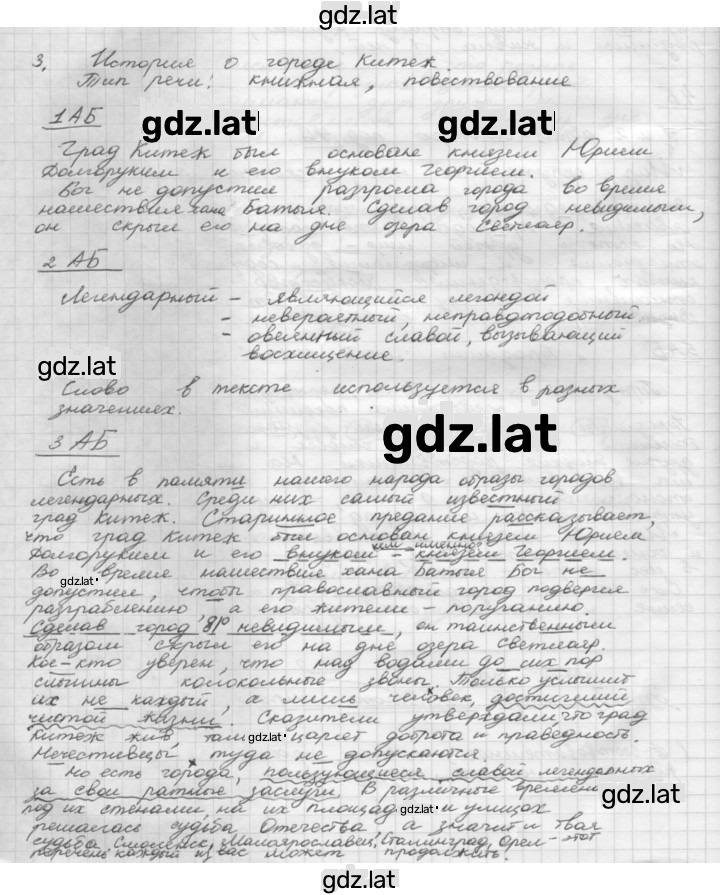 gdz.lat
3. История о городе Китеж.
Тип речи: книжная, повествование
1 АБ
gdz.lat gdz.lat
Град Китеж был основан князем Юрием
Долгоруким и его внуком Георгием.
Бог не допустил разгрома города во время
нашествия хана Батыя. Сделав город невидимым,
он скрыл его на дне озера Светлояр.
2 АБ
gdz.lat
Легендарный – являющийся легендой
– невероятный, неправдоподобный
– овеянный славой, вызывающий
восхищение.
gdz.lat
Слово в тексте используется в разных
значениях.
3 АБ
gdz.lat
Есть в памяти нашего народа образы городов
легендарных. Среди них самый известный
град Китеж. Старинное предание рассказывает,
что град Китеж был основан князем Юрием
Долгоруким и его внуком – князем Георгием.
Во время нашествия хана Батыя Бог не
gdz.lat
допустил, чтобы православный город подвергся
разграблению, а его жители – поруганию.
Сделав город невидимым, он таинственным
образом скрыл его на дне озера Светлояр.
Кое-кто уверен, что над водами до сих пор
слышны колокольные звоны. Только услышит
их не каждый, а лишь человек, достигший
чистой жизни. Сказители утверждали, что град
Китеж жив, там царяет доброта и праведность.
gdz.lat
Нечестивцы туда не допускаются.
Но есть города, пользующиеся славой легендарных
за свои ратные заслуги. В различные времена
под их стенами, на их площадях и улицах
gdz.lat gdz.lat
решалась судьба Отечества, а значит и твоя
судьба. Смоленск, Малоярославец, Сталинград, Орел – этот
перечень каждый из вас может продолжить.
gdz.lat